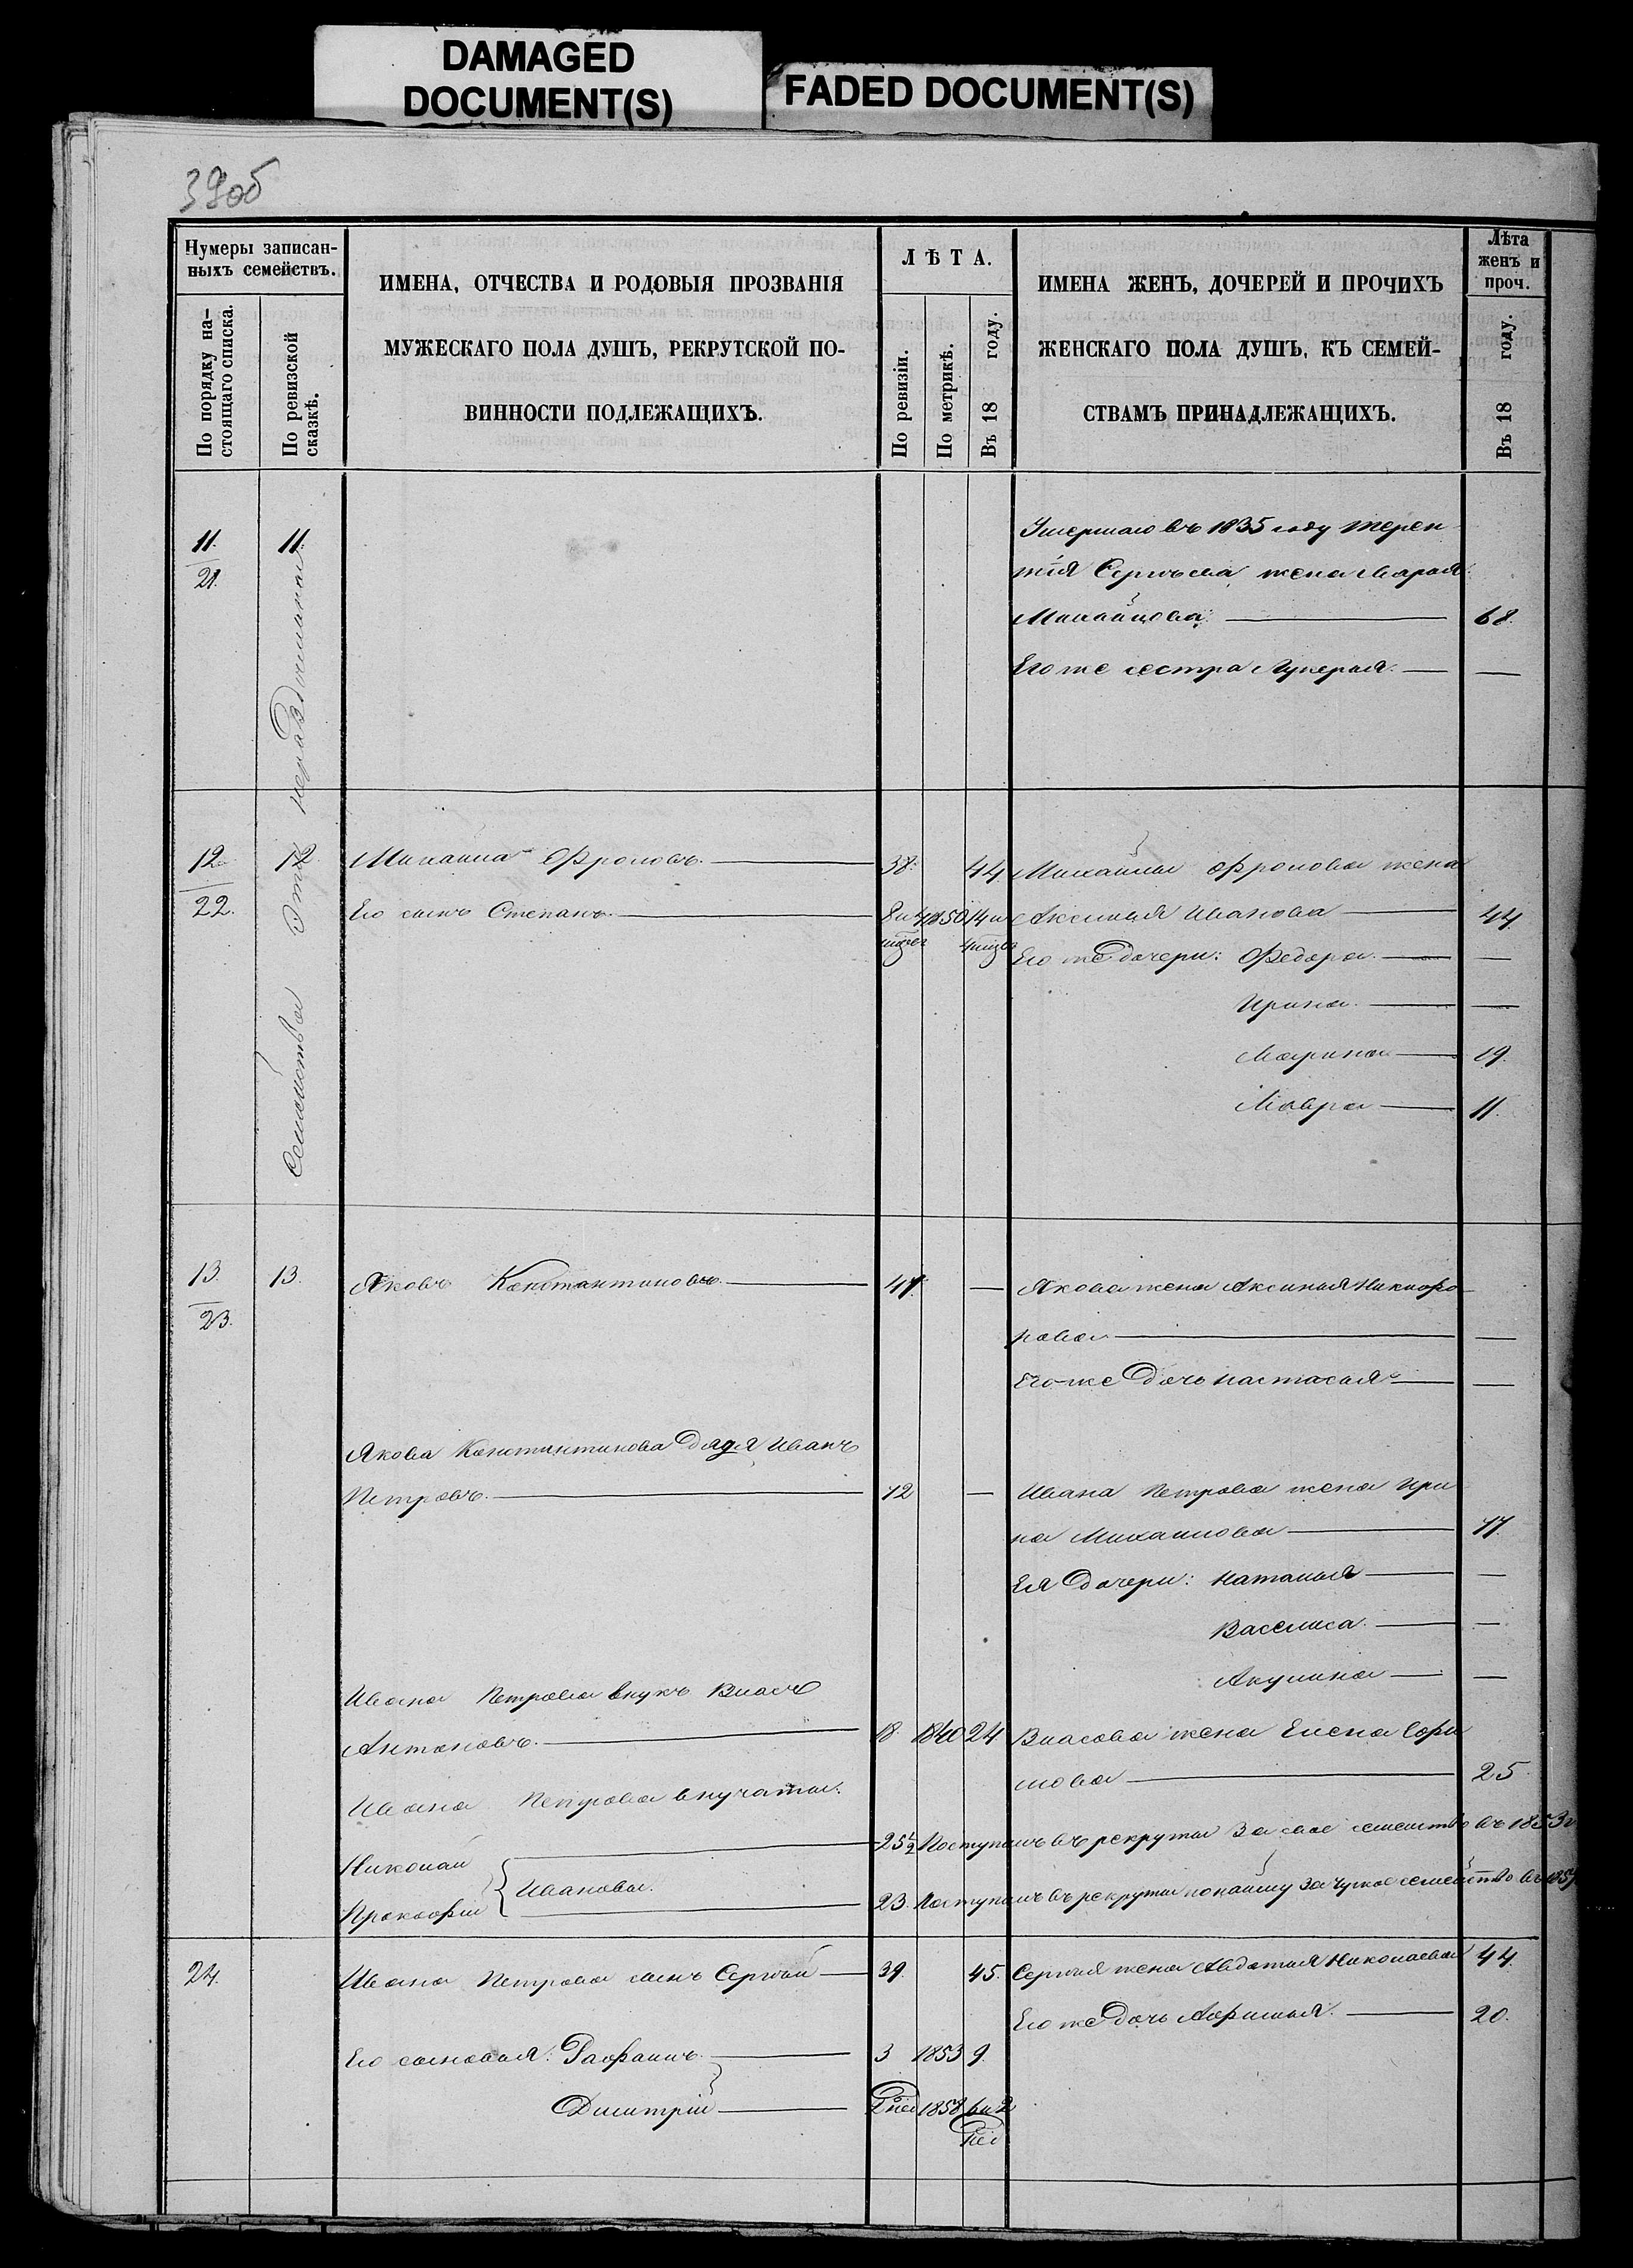 DAMAGED
DOCUMENT(S)
FADED DOCUMENT(S)
39об
Нумеры записан-
ныхъ семействъ.
По порядку на-
стоящаго списка.
По ревизской
сказкѣ.
ИМЕНА, ОТЧЕСТВА И РОДОВЫЯ ПРОЗВАНІЯ
МУЖЕСКАГО ПОЛА ДУШЪ, РЕКРУТСКОЙ ПО-
ВИННОСТИ ПОДЛЕЖАЩИХЪ.
ЛѢТА.
По ревизіи.
По метрикѣ.
Въ 18 году.
ИМЕНА ЖЕНЪ, ДОЧЕРЕЙ И ПРОЧИХЪ
ЖЕНСКАГО ПОЛА ДУШЪ, КЪ СЕМЕЙ-
СТВАМЪ ПРИНАДЛЕЖАЩИХЪ.
Лѣта
женъ и
проч.
Въ 18 году.
11. 11. Умершаго въ 1835 году Терен
21. тія Сергѣева жена Марья
Михайлова: 68.
Его же сестра Лукерья. —
Эти
семейства
12. 12 Михаила Фроловъ. 38. 44. Михайлы Фролова жена
22. Его сынъ Степанъ. 8 и 4 1850 14 и Аксинья Иванова 44
Его же дочери: Федора. —
Ирина. —
Марина 19.
Мавра 11.
13. 13. Яковъ Константиновъ. 47. — Якова жена Аксинья Никифо
23. рова —
Его-же дочь Настасья —
Якова Константинова дядя Иванъ
Петровъ. 72 — Ивана Петрова жена Ири
на Михаилова 77.
Ея дочери: Наталья —
Василиса. —
Акулина —
Ивана Петрова внукъ Власъ
Антоновъ. 18. 1840 24 Власова жена Елена
мова 25.
Ивана Петрова внучаты:
Николай 25½ Поступилъ въ рекруты за свое семейство въ 1853 г
Ивановы.
Прокофій 23. Поступилъ въ рекруты по найму за чужое семейство въ
24. Ивана Петрова сынъ Сергѣй 39. 45. Сергѣя жена Авдотья Николаева 44.
Его же дочь Афимья. 20.
Его сыновья: Рафаилъ. 3 1853 9.
Дмитрій 2 дней 1858 6 и 2
дней